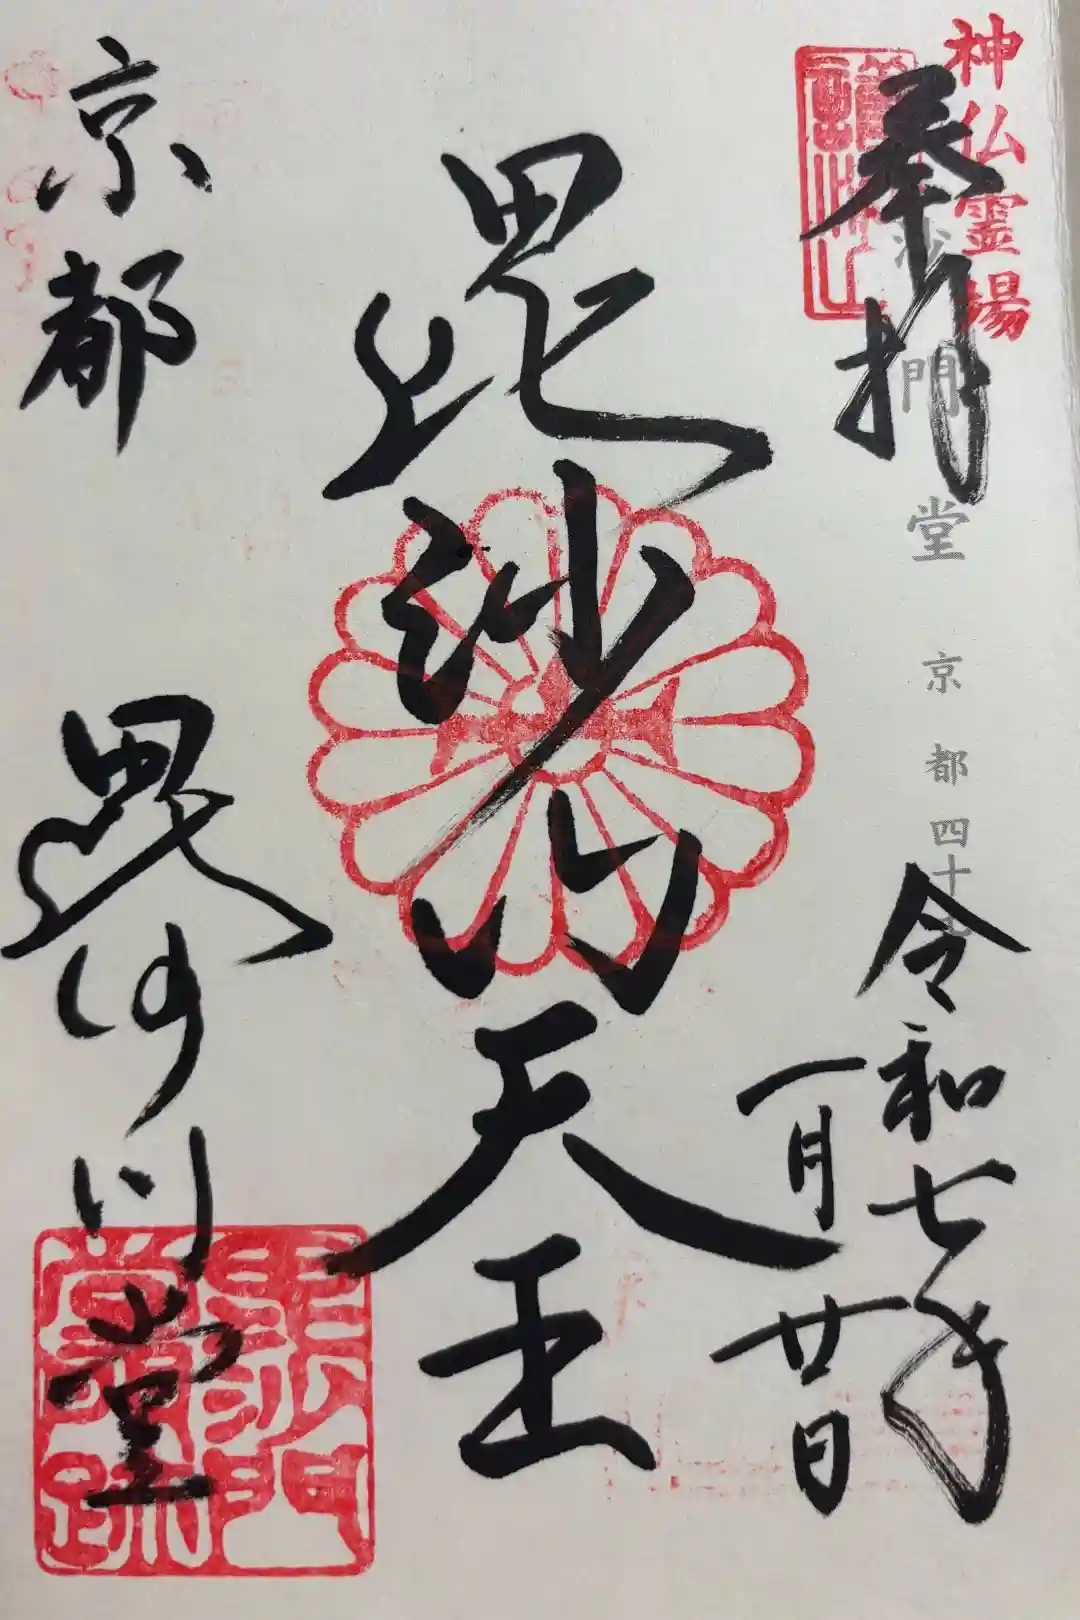 神仏霊場
奉拝
門堂 京都四十
令和七年
一月廿日
毘沙門天王
京都
毘沙門堂
毘沙門堂門跡